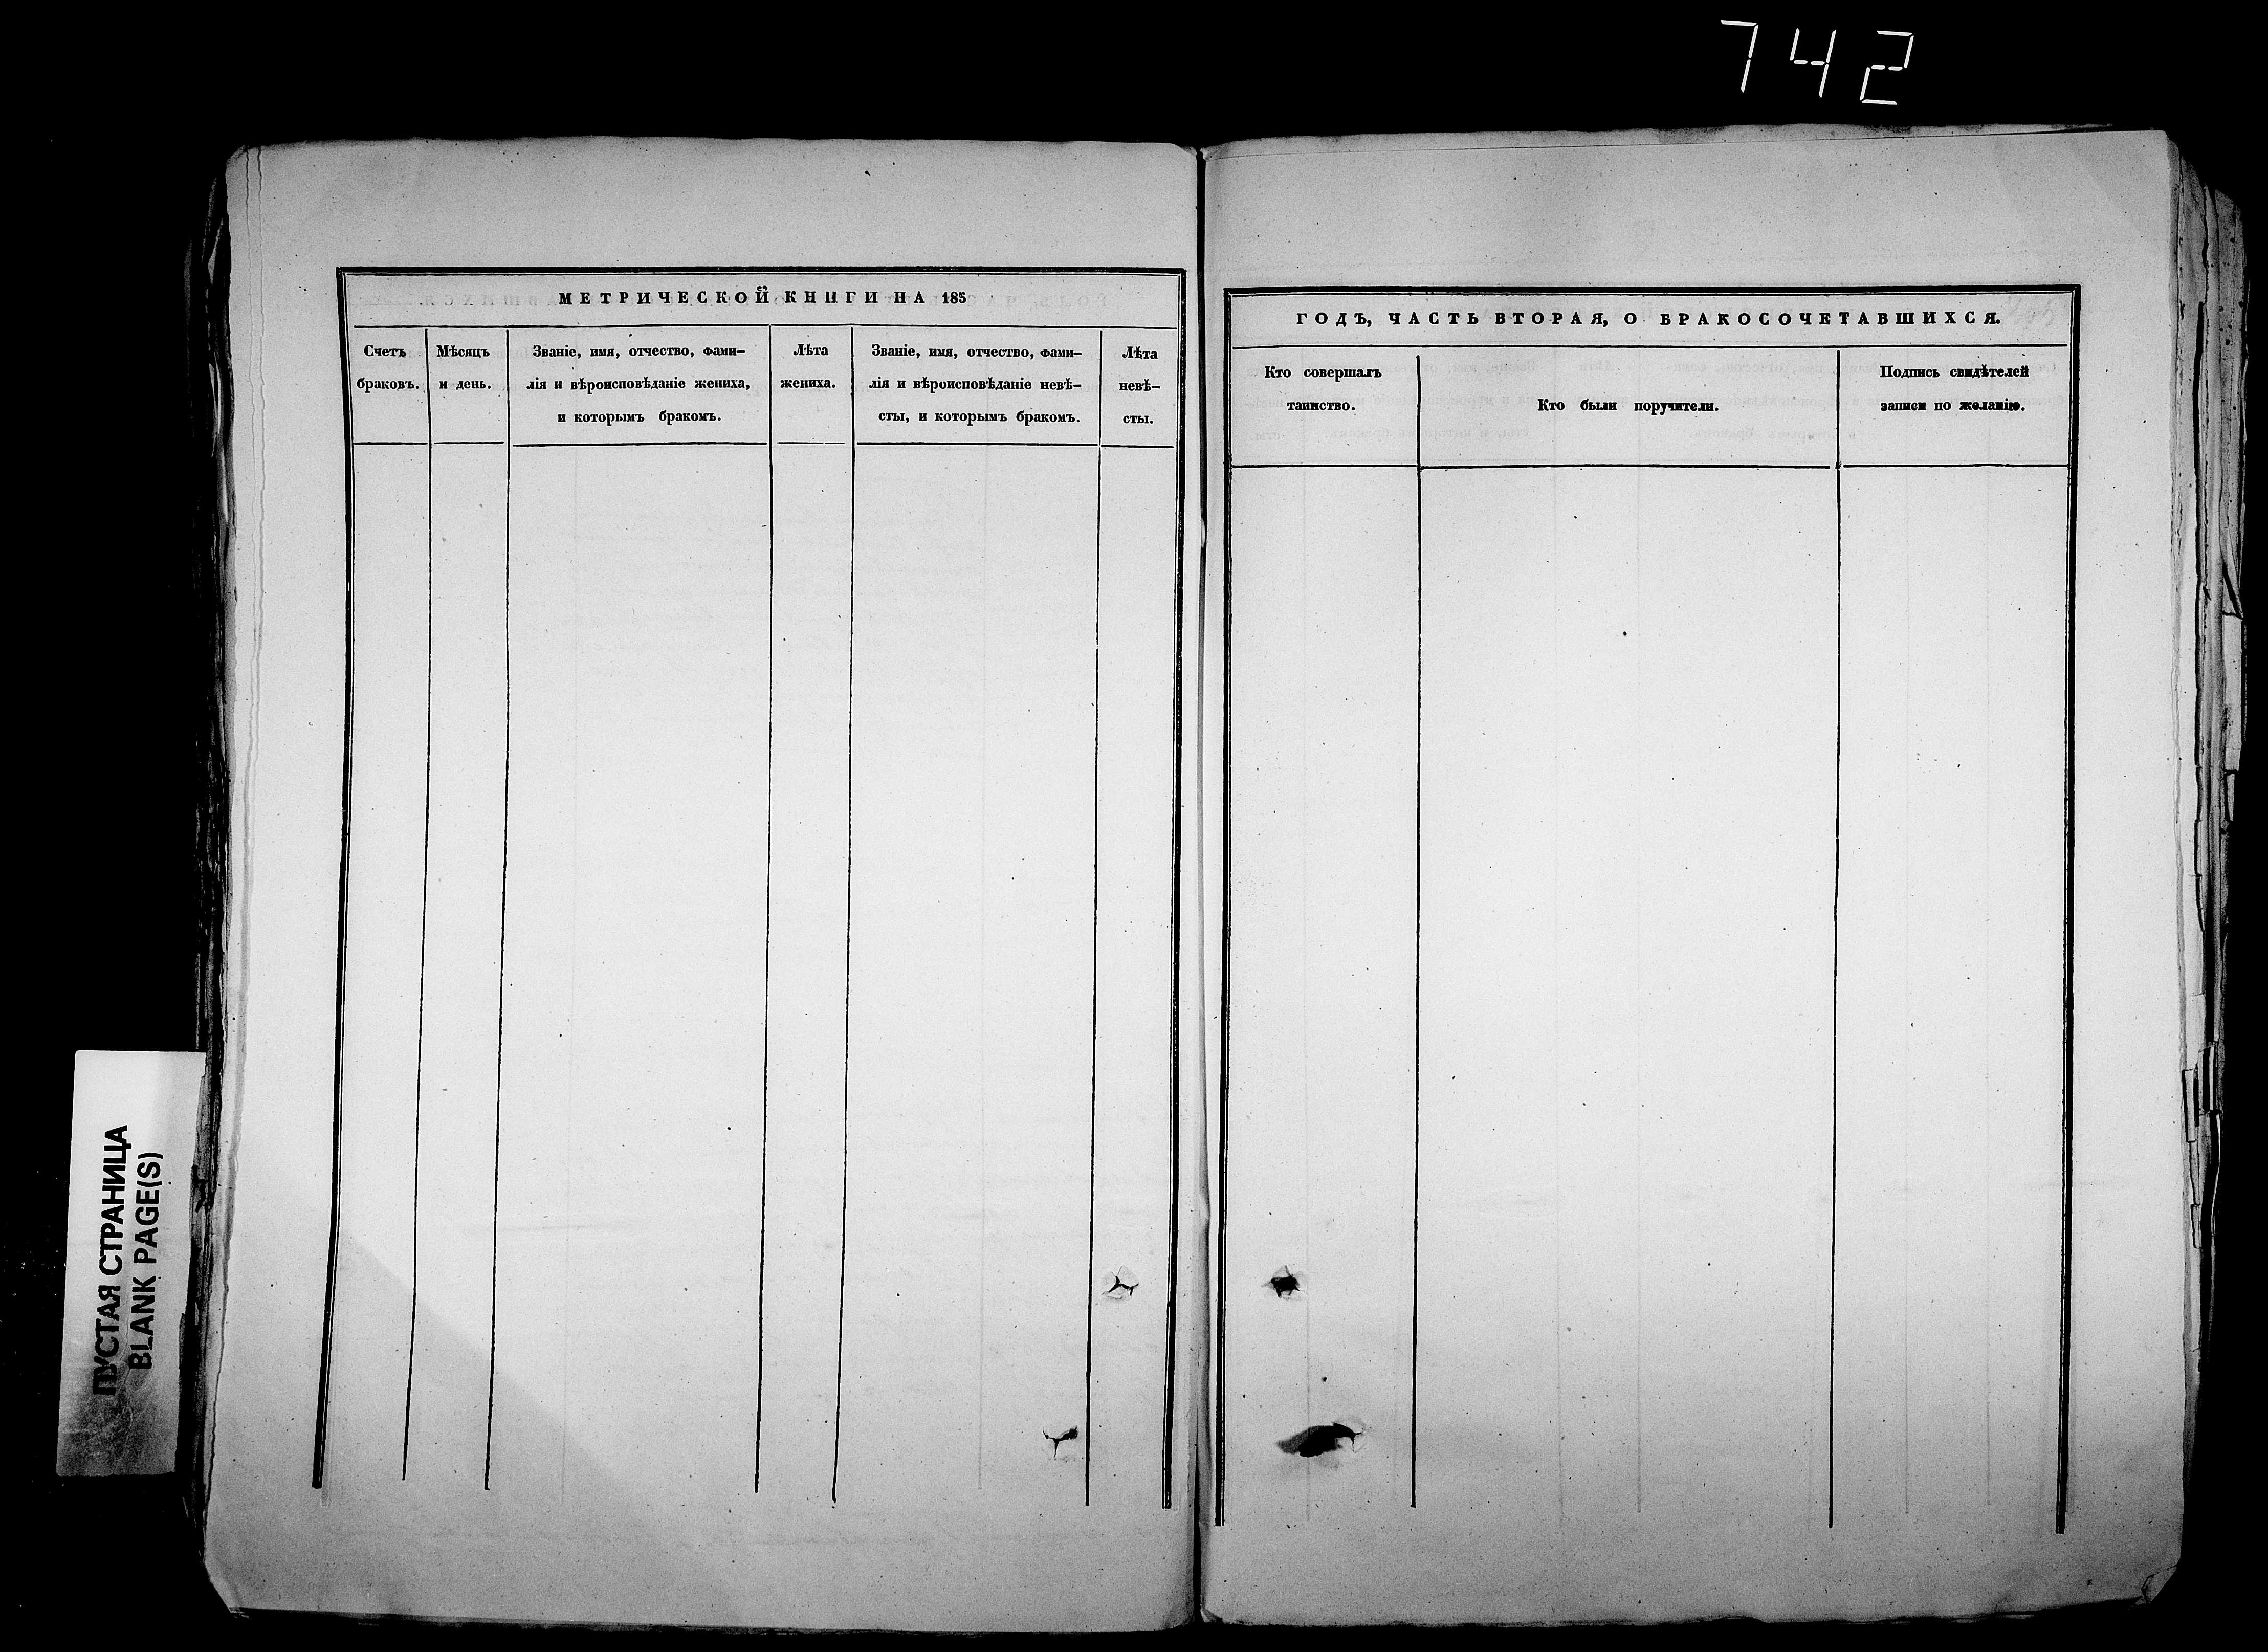 742
МЕТРИЧЕСКОЙ КНИГИ НА 185
Счетъ
браковъ.
Мѣсяцъ
и день.
Званіе, имя, отчество, фами–
лія и вѣроисповѣданіе жениха,
и которымъ бракомъ.
Лѣта
жениха.
Званіе, имя, отчество, фами–
лія и вѣроисповѣданіе невѣ–
сты, и которымъ бракомъ.
Лѣта
невѣ–
сты.
ГОДЪ, ЧАСТЬ ВТОРАЯ, О БРАКОСОЧЕТАВШИХСЯ.
Кто совершалъ
таинство.
Кто были поручители.
Подпись свидѣтелей
записи по желанію.
ПУСТАЯ СТРАНИЦА
BLANK PAGE(S)